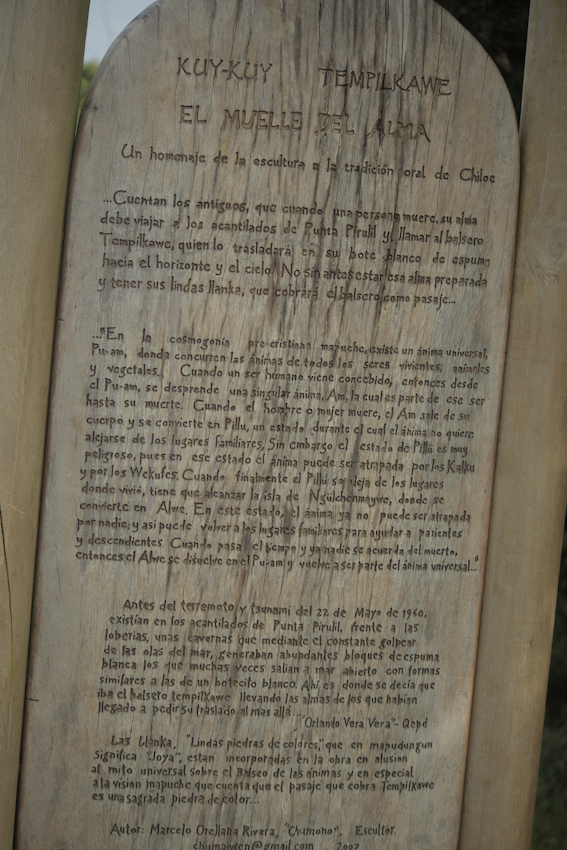 KUY-KUY TEMPILKAWE
EL MUELLE DEL ALMA
Un homenaje de la escultura a la tradición oral de Chiloe
...Cuentan los antiguos, que cuando una persona muere, su alma
debe viajar a los acantilados de Punta Pirulil y llamar al balsero
Tempilkawe, quien lo trasladará en su bote blanco de espuma
hacia el horizonte y el cielo. No sin antes estar esa alma preparada
y tener sus lindas llanka, que cobrará el balsero como pasaje...
..."En la cosmogonía pre-cristiana mapuche, existe un ánima universal,
Pu-am, donda concurren las ánimas de todos los seres vivientes, animales
y vegetales. Cuando un ser humano viene concebido, entonces desde
el Pu-am, se desprende una singular ánima, Am, la cual es parte de ese ser
hasta su muerte. Cuando el hombre o mujer muere, el Am sale de su
cuerpo y se convierte en Pillu, un estado durante el cual el ánima no quiere
alejarse de los lugares familiares. Sin embargo el estado de Pillü es muy
peligroso, pues en ese estado el ánima puede ser atrapada por los Kalku
y por los Wekufes. Cuando finalmente el Pillü se aleja de los lugares
donde vivió, tiene que alcanzar la isla de Ngülchenmaywe, donde se
convierte en Alwe. En este estado, el ánima ya no puede ser atrapada
por nadie; y asi puede volver a los lugares familiares para ayudar a parientes
y descendientes. Cuando pasa el tiempo y ya nadie se acuerda del muerto,
entonces el Alwe se disuelve en el Pu-am y vuelve a ser parte del ánima universal..."
Antes del terremoto y tsunami del 22 de Mayo de 1960,
existían en los acantilados de Punta Pirulil, frente a las
loberias, unas cavernas que mediante el constante golpear
de las olas del mar, generaban abundantes bloques de espuma
blanca los que muchas veces salian a mar abierto con formas
similares a las de un botecito blanco. Ahí es donde se decía que
iba el balsero tempilkawe llevando las almas de los que habían
llegado a pedir su traslado al mas allá..."
"Orlando Vera Vera"- Qepd
Las Llanka, "Lindas piedras de colores," que en mapudungun
significa "Joya", estan incorporadas en la obra en alusion
al mito universal sobre el Balseo de las ánimas y en especial
a la vision mapuche que cuenta que el pasaje que cobra Tempilkawe
es una sagrada piedra de color...
Autor: Marcelo Orellana Rivera, "Chumono", Escultor.
@gmail.com 2007